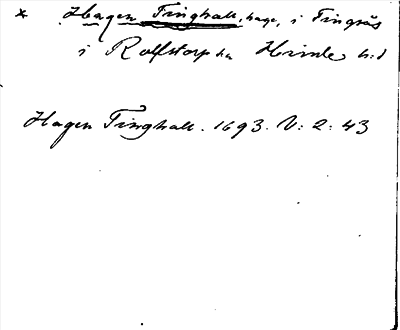 * Hagen Tinghall, hage, i Tingnäs
i Rolfstorp sn Himle hd
Hagen Tinghall. 1693. V: 2: 43